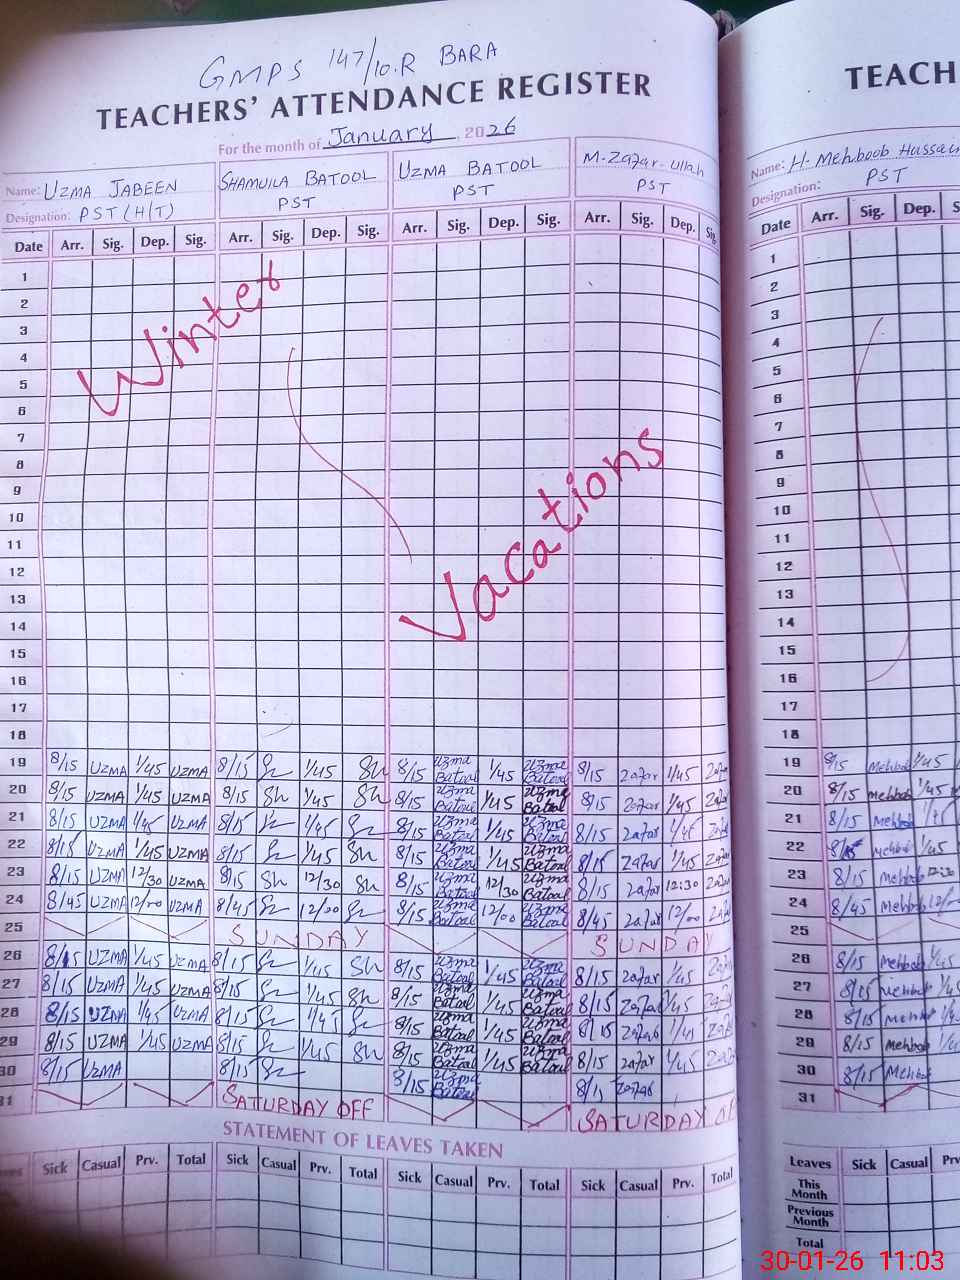 GMPS 147/10.R BARA
TEACHERS' ATTENDANCE REGISTER
For the month of January, 2026
Name: UZMA JABEEN SHAMUILA BATOOL UZMA BATOOL M-Zafar-Ullah
Designation: PST (H/T) PST PST PST
Date Arr. Sig. Dep. Sig. Arr. Sig. Dep. Sig. Arr. Sig. Dep. Sig. Arr. Sig. Dep. Sig.
1
2
3
4
5
6
7
8
9
10
11
12
13
14
15
16
17
18
Winter
Vacations
19 8/15 UZMA 1/45 UZMA 8/15 1/45 Sh 8/15 Uzma Batool 1/45 Uzma Batool 8/15 Zafar 1/45
20 8/15 UZMA 1/45 UZMA 8/15 Sh 1/45 Sh 8/15 Uzma Batool 1/45 Uzma Batool 8/15 Zafar 1/45
21 8/15 UZMA 1/45 UZMA 8/15 1/45 8/15 Uzma Batool 1/45 Uzma Batool 8/15 Zafar 1/45
22 8/15 UZMA 1/45 UZMA 8/15 1/45 Sh 8/15 Uzma Batool 1/45 Uzma Batool 8/15 Zafar 1/45
23 8/15 UZMA 12/30 UZMA 8/15 Sh 12/30 Sh 8/15 Uzma Batool 12/30 Uzma Batool 8/15 Zafar 12:30
24 8/45 UZMA 12/00 UZMA 8/45 12/00 8/15 Uzma Batool 12/00 Uzma Batool 8/45 Zafar 12/00
25 SUNDAY SUNDAY
26 8/15 UZMA 1/45 UZMA 8/15 1/45 Sh 8/15 Uzma Batool 1/45 Uzma Batool 8/15 Zafar 1/45
27 8/15 UZMA 1/45 UZMA 8/15 1/45 Sh 8/15 Uzma Batool 1/45 Uzma Batool 8/15 Zafar 1/45
28 8/15 UZMA 1/45 UZMA 8/15 1/45 8/15 Uzma Batool 1/45 Uzma Batool 8/15 Zafar 1/45
29 8/15 UZMA 1/45 UZMA 8/15 1/45 Sh 8/15 Uzma Batool 1/45 Uzma Batool 8/15 Zafar 1/45
30 8/15 UZMA 8/15 8/15 Uzma Batool Zafar
31 SATURDAY OFF SATURDAY
STATEMENT OF LEAVES TAKEN
Sick Casual Prv. Total Sick Casual Prv. Total Sick Casual Prv. Total Sick Casual Prv. Total
Name: H. Mehboob Hussain
Designation: PST
Date Arr. Sig. Dep.
1
2
3
4
5
6
7
8
9
10
11
12
13
14
15
16
17
18
19 8/15 Mehboob 1/45
20 8/15 Mehboob 1/45
21 8/15 Mehboob
22 8/15 Mehboob 1/45
23 8/15 Mehboob 12:30
24 8/45 Mehboob
25
26 8/15 Mehboob 1/45
27 8/15 Mehboob
28 8/15 Mehboob
29 8/15 Mehboob
30 8/15 Mehboob
31
Leaves Sick Casual
This Month
Previous Month
Total
30-01-26 11:03